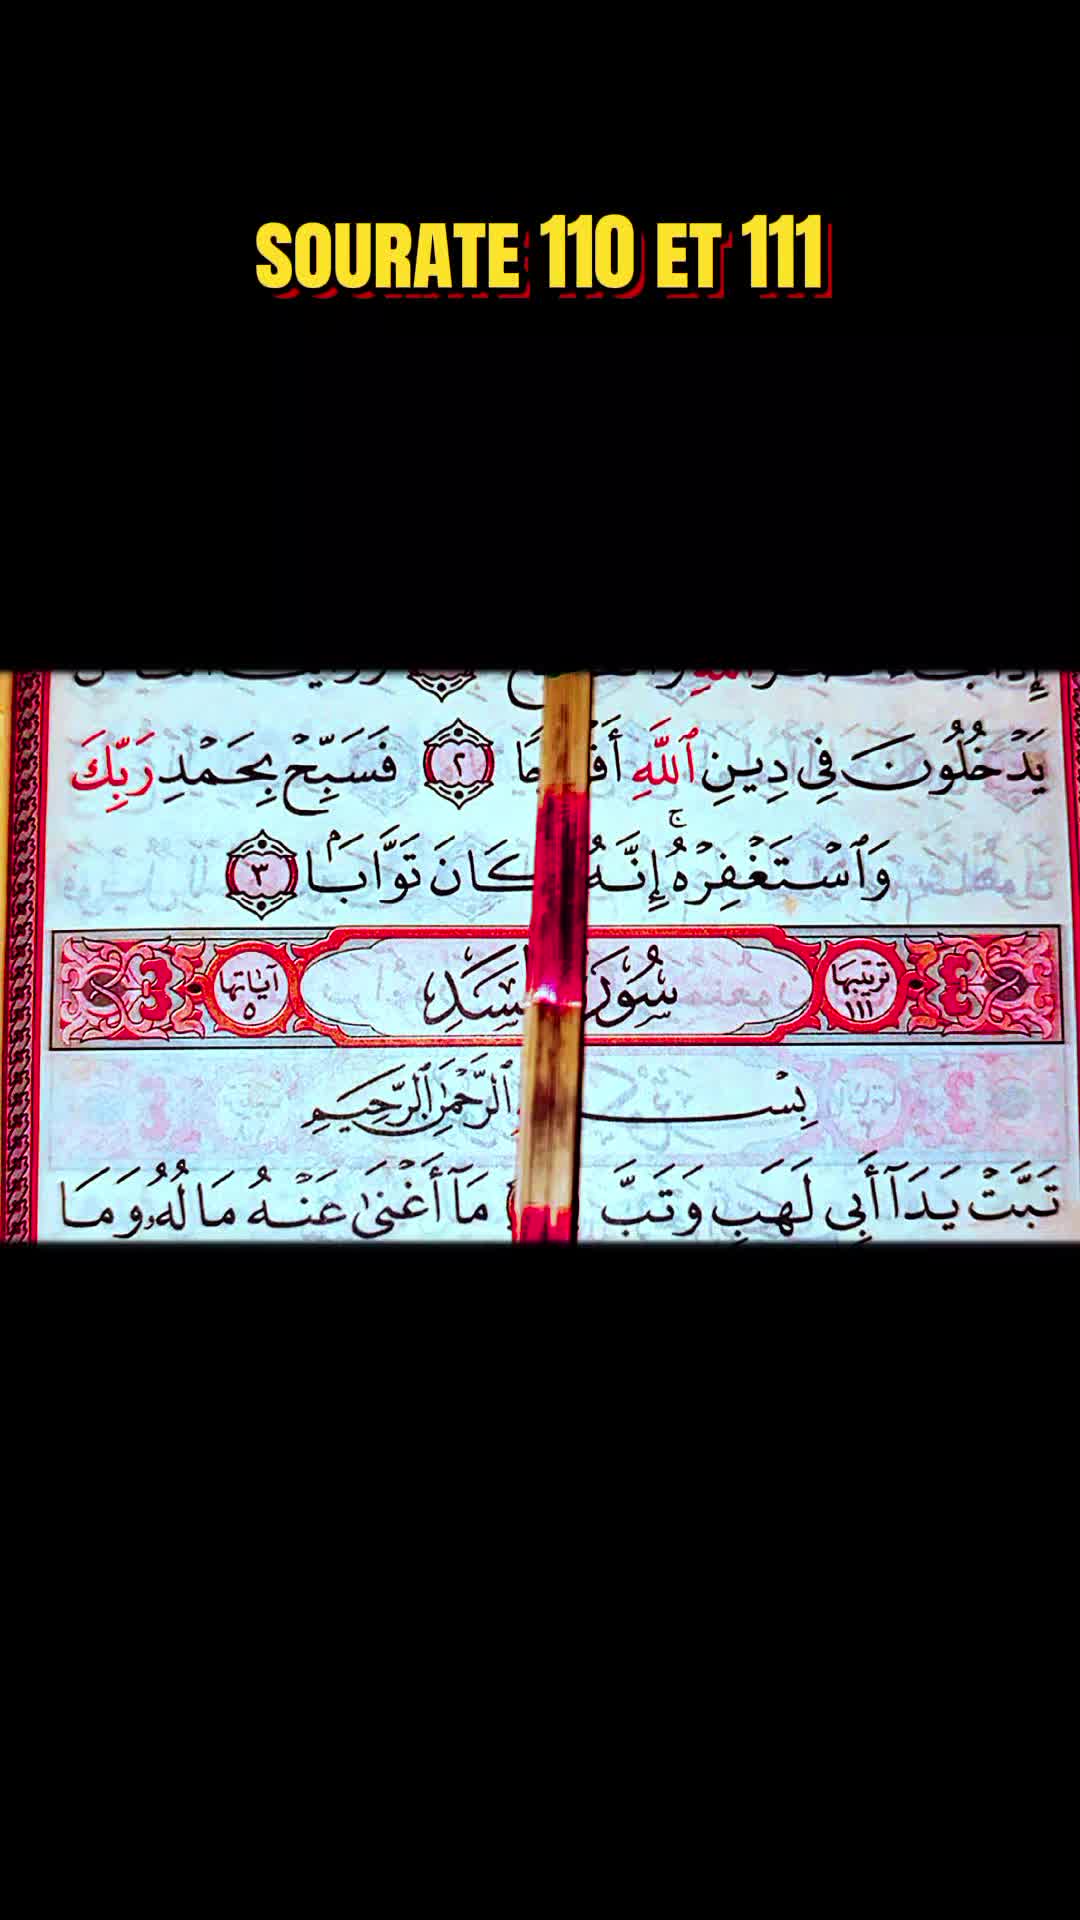 SOURATE 110 ET 111
يَدْخُلُونَ فِى دِينِ ٱللَّهِ ٢ فَسَبِّحْ بِحَمْدِ رَبِّكَ
وَٱسْتَغْفِرْهُ ۚ إِنَّهُ كَانَ تَوَّابَۢا ٣
ترتيبها ١١١ سُورَة آياتها ٥
ٱلرَّحْمَٰنِ ٱلرَّحِيمِ
تَبَّتْ يَدَآ أَبِى لَهَبٍ وَتَبَّ مَآ أَغْنَىٰ عَنْهُ مَالُهُۥ وَمَا